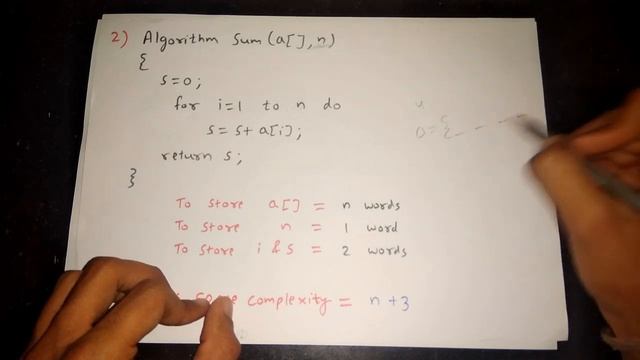 2) Algorithm Sum(a[],n)
{
s=0;
for i=1 to n do
s = s+ a[i];
return s;
}
To store a[] = n words
To store n = 1 word
To store i & s = 2 words
complexity = n+3